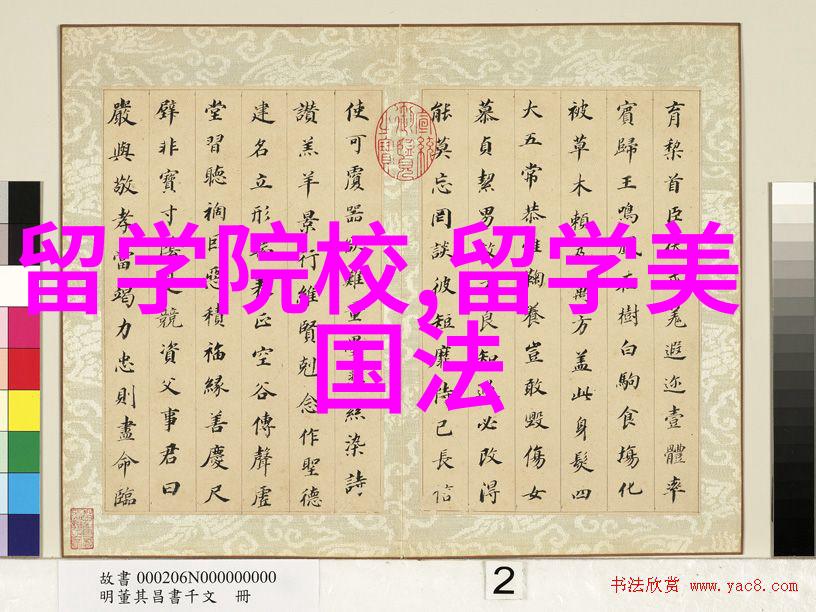 育黎首臣伏戎羌遐迩壹體率
賓歸王鳴鳳在樹白駒食場化
被草木頼及萬方蓋此身髮四
大五常恭惟鞠養豈敢毀傷女
慕貞絜男效才良知過必改得
能莫忘罔談彼短靡恃己長信
使可覆器欲難量墨悲絲染詩
讚羔羊景行維賢剋念作聖德
建名立形端表正空谷傳聲虛
堂習聽禍因惡積福緣善慶尺
璧非寶寸陰是競資父事君曰
嚴與敬孝當竭力忠則盡命臨
留学院校,留学美
国法
故書 000206N000000000
明董其昌書千文 冊
2
书法欣赏 www.yac8.com